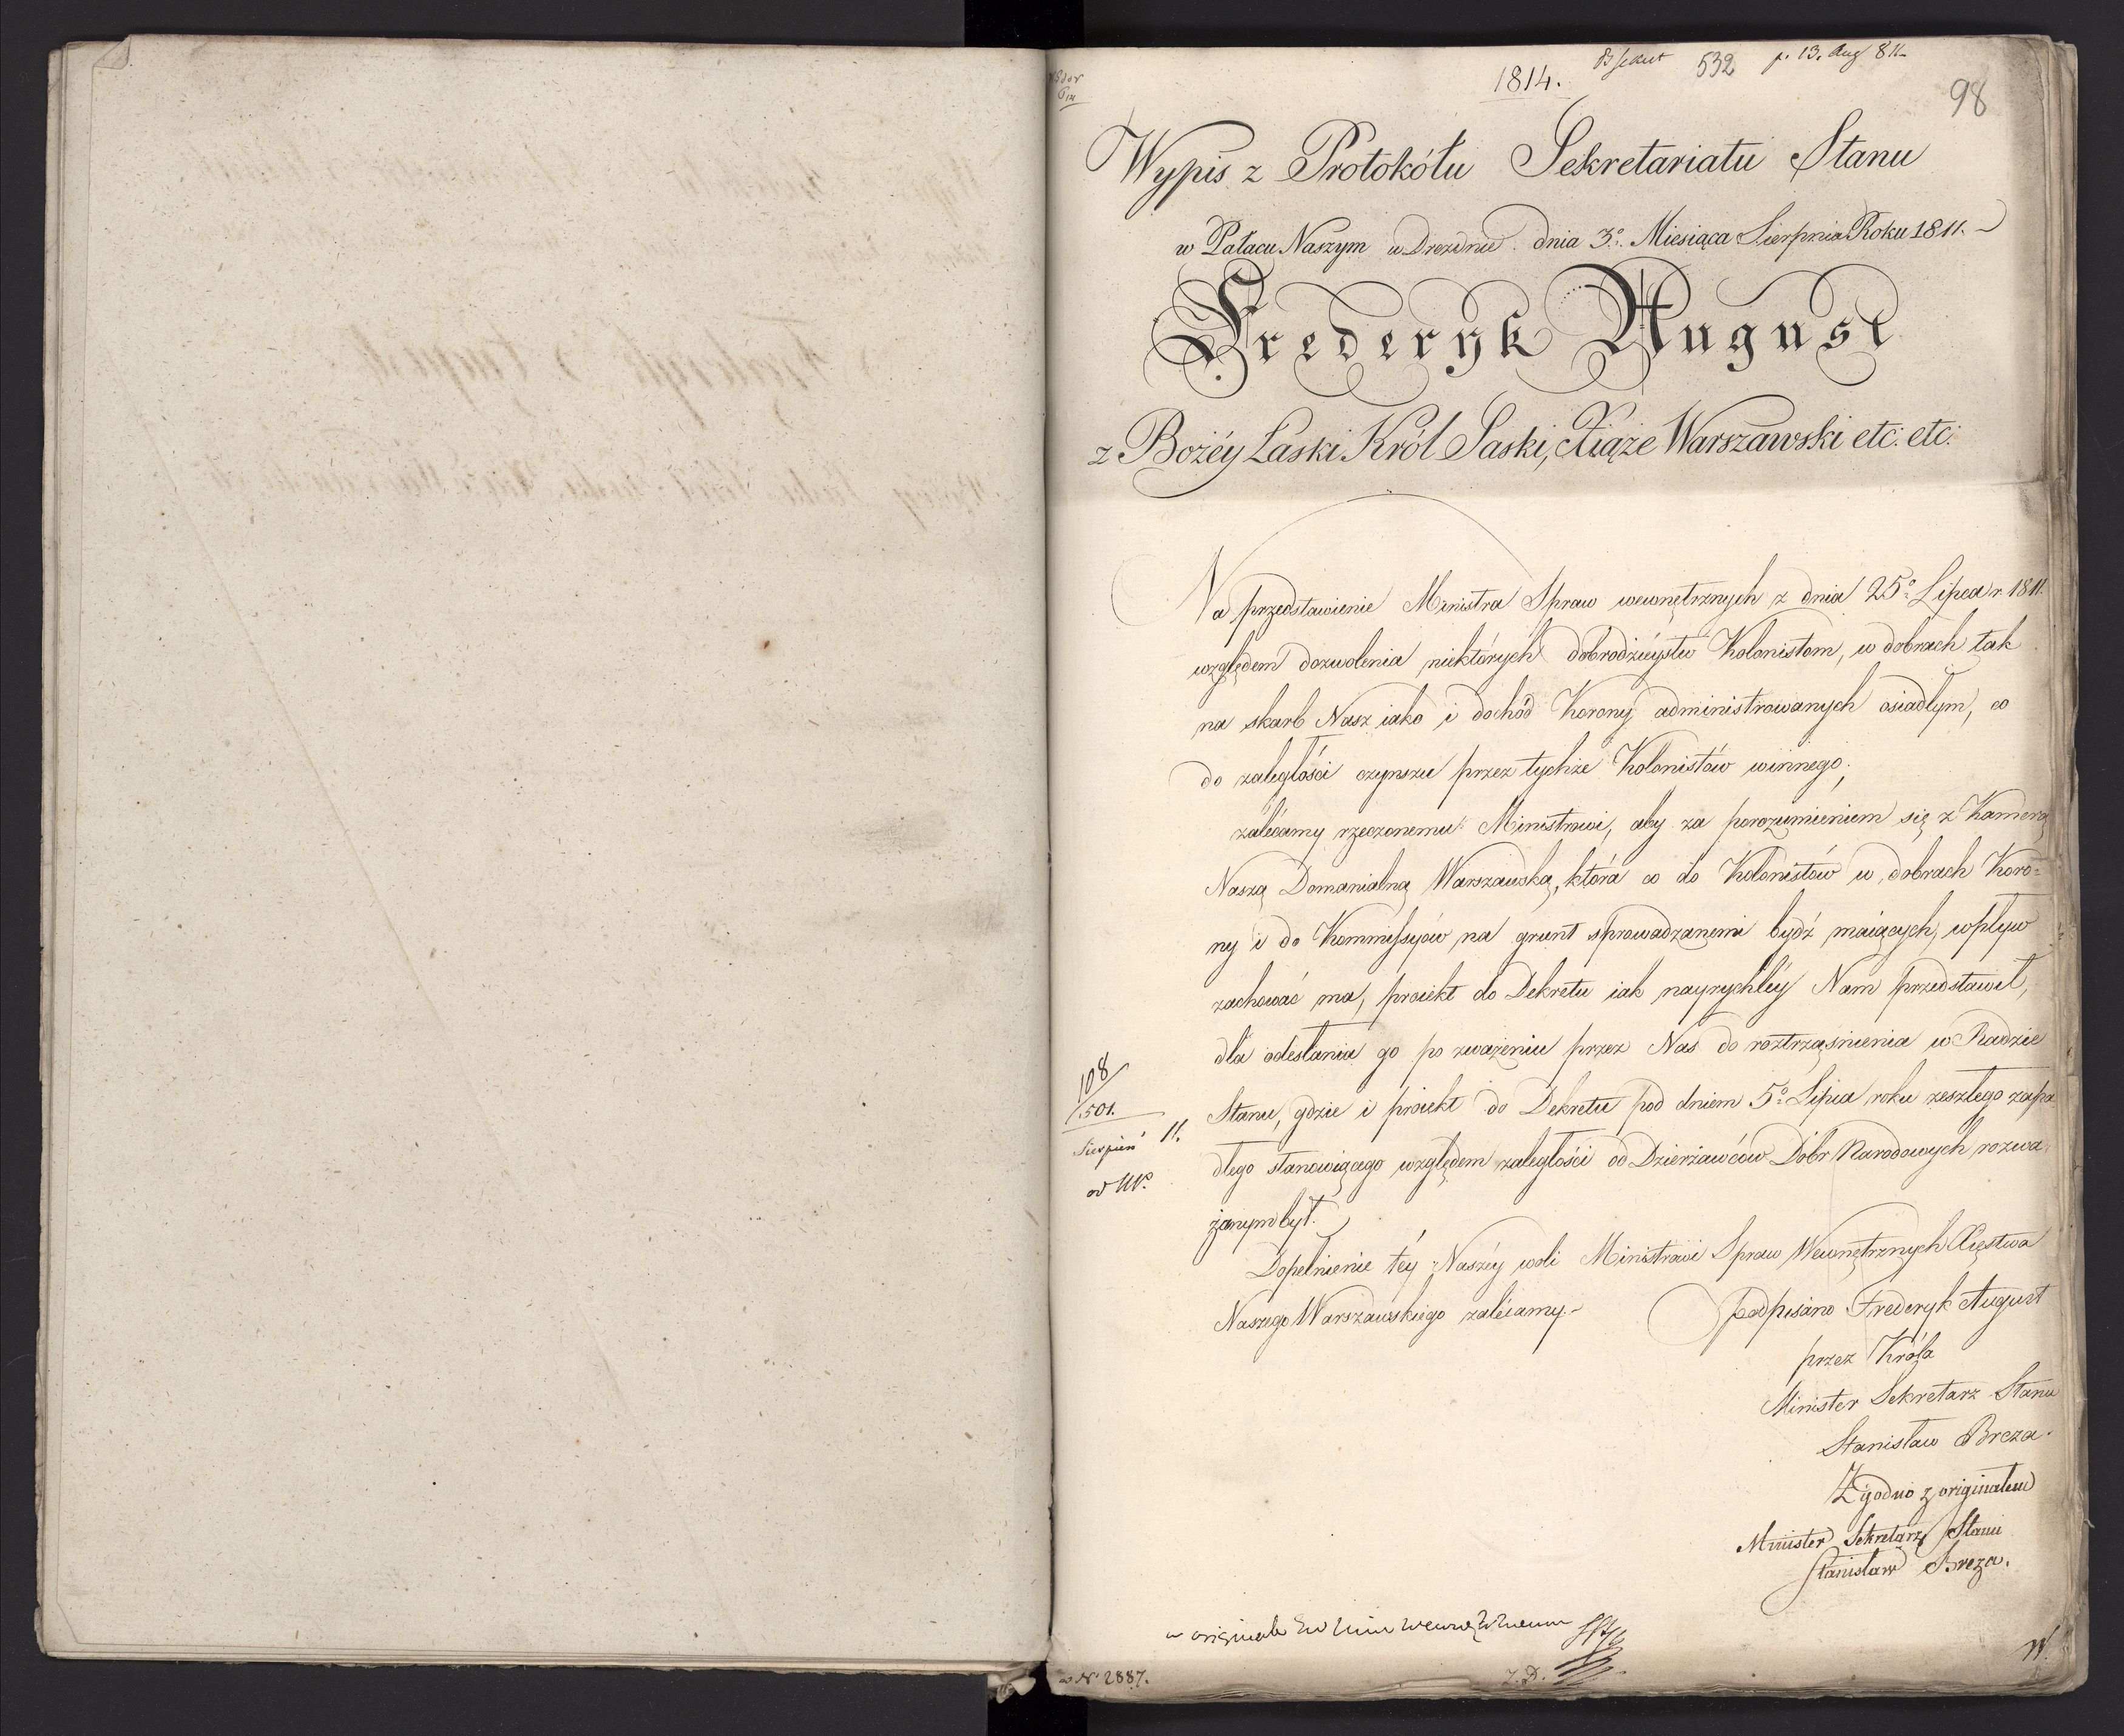 1814.
532
p. 13. Aug 811
98
Wypis z Protokółu Sekretariatu Stanu
w Pałacu Naszym w Dreznie dnia 3º Miesiąca Sierpnia Roku 1811.
Frederyk August
z Bożéy Łaski Król Saski, Xiąże Warszawski etc: etc:
Na przedstawienie Ministra Spraw wewnętrznych z dnia 25º Lipca r. 1811.
względem dozwolenia niektórych dobrodzieystw Kolonistom, w dobrach tak
na skarb Nasz iako i dochód Korony administrowanych osiadłym, co
do zaległości czynszu przez tychże Kolonistów winnego;
zalécamy rzeczonemu Ministrowi, aby za porozumieniem się z Kamerą
Naszą Domanialną Warszawską, która co do Kolonistów w dobrach Koro=
ny i do Kommissyów na grunt sprowadzanemi bydź maiących, wpływ
zachować ma, proiekt do Dekretu iak nayrychléy Nam przedstawił,
dla odesłania go po zważeniu przez Nas do roztrząśnienia w Radzie
Stanu, gdzie i proiekt do Dekretu pod dniem 5º Lipca roku zeszłego zapa
dłego stanowiącego względem zaległości od Dzierżawców Dóbr Narodowych rozwa
żanym był.
108
501.
Sierpień 11.
Dopełnienie téy Naszéy woli Ministrowi Spraw Wewnętrznych Xięstwa
Naszego Warszawskiego zalécamy.
podpisano Frederyk August
przez Króla
Minister Sekretarz Stanu
Stanisław Breza.
Zgodno z originałem
Minister Sekretarz Stanu
Stanisław Breza.
w originale
N. 2887.
W.